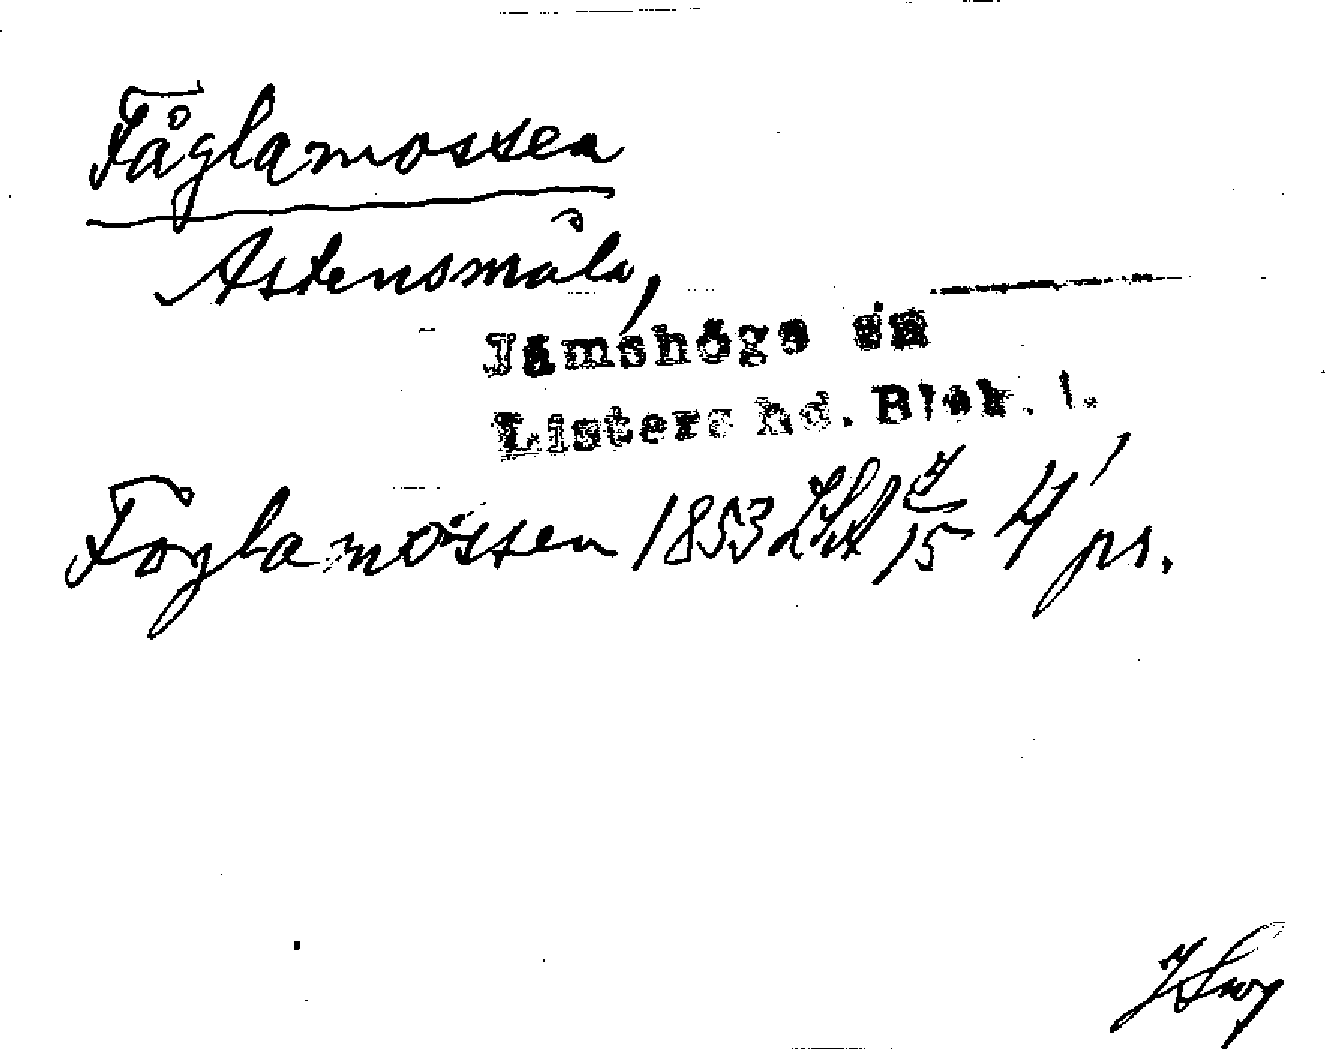 Fåglamossen
Astensmåla,
Jämshögs sn
Listers hd. Blek. l.
Foglamossen 1853 4/15 4 pr.